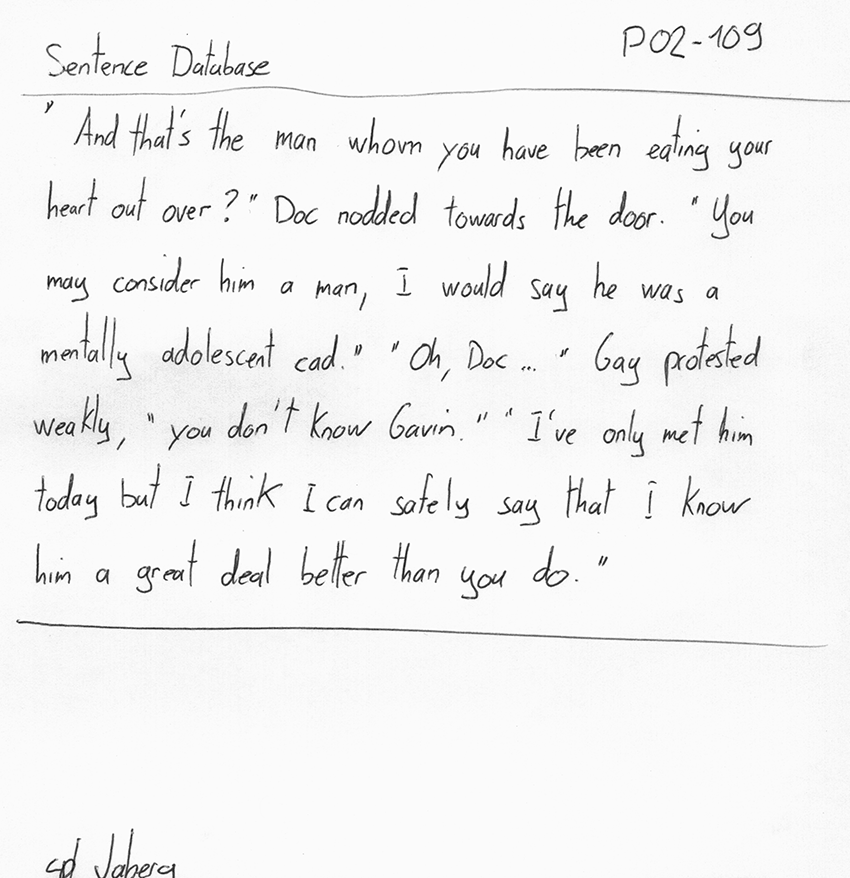 Sentence Database P02-109
" And that's the man whom you have been eating your
heart out over?" Doc nodded towards the door. "You
may consider him a man, I would say he was a
mentally adolescent cad." "Oh, Doc... " Gay protested
weakly, "you don't know Gavin." "I've only met him
today but I think I can safely say that I know
him a great deal better than you do."